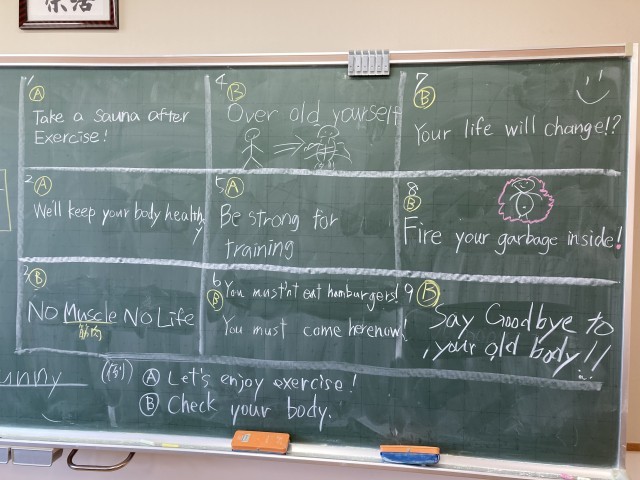 1 A
Take a sauna after
Exercise!
2 A
We'll keep your body healthy
3 B
No Muscle No Life
筋肉
4 B
Over old yourself
5 A
Be strong for
training
6 B
You must'nt eat hamburgers!
You must come herenow!
7 B
Your life will change!?
8 B
Fire your garbage inside!
9 B
Say Goodbye to
your old body!!
unny
(例)
A Let's enjoy exercise!
B Check your body.